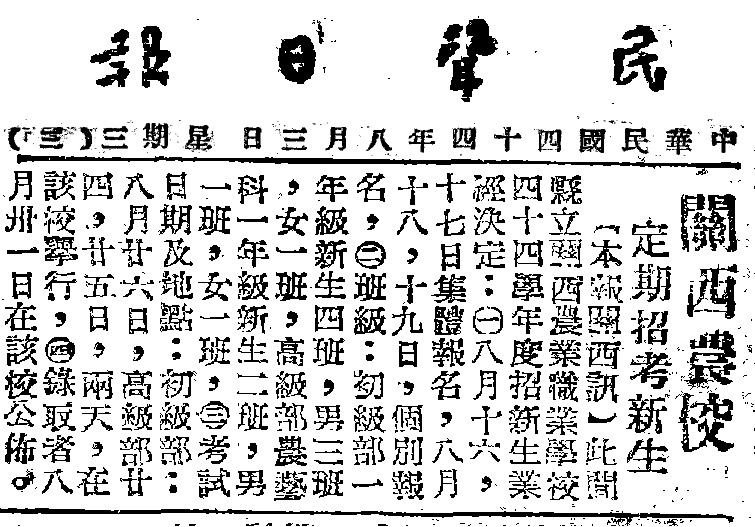 民聲日報
中華民國四十四年八月三日 星期三(三)
關西農校
定期招考新生
【本報關西訊】此間
縣立關西農業職業學校
四十四學年度招新生業
經決定:㊀八月十六,
十七日集體報名,八月
十八,十九日,個別報
名,㊁班級:初級部一
年級新生四班,男三班
,女一班,高級部農藝
科一年級新生二班,男
一班,女一班,㊂考試
日期及地點:初級部:
八月廿六日,高級部廿
四,廿五日,兩天,在
該校舉行,㊃錄取者八
月卅一日在該校公佈。